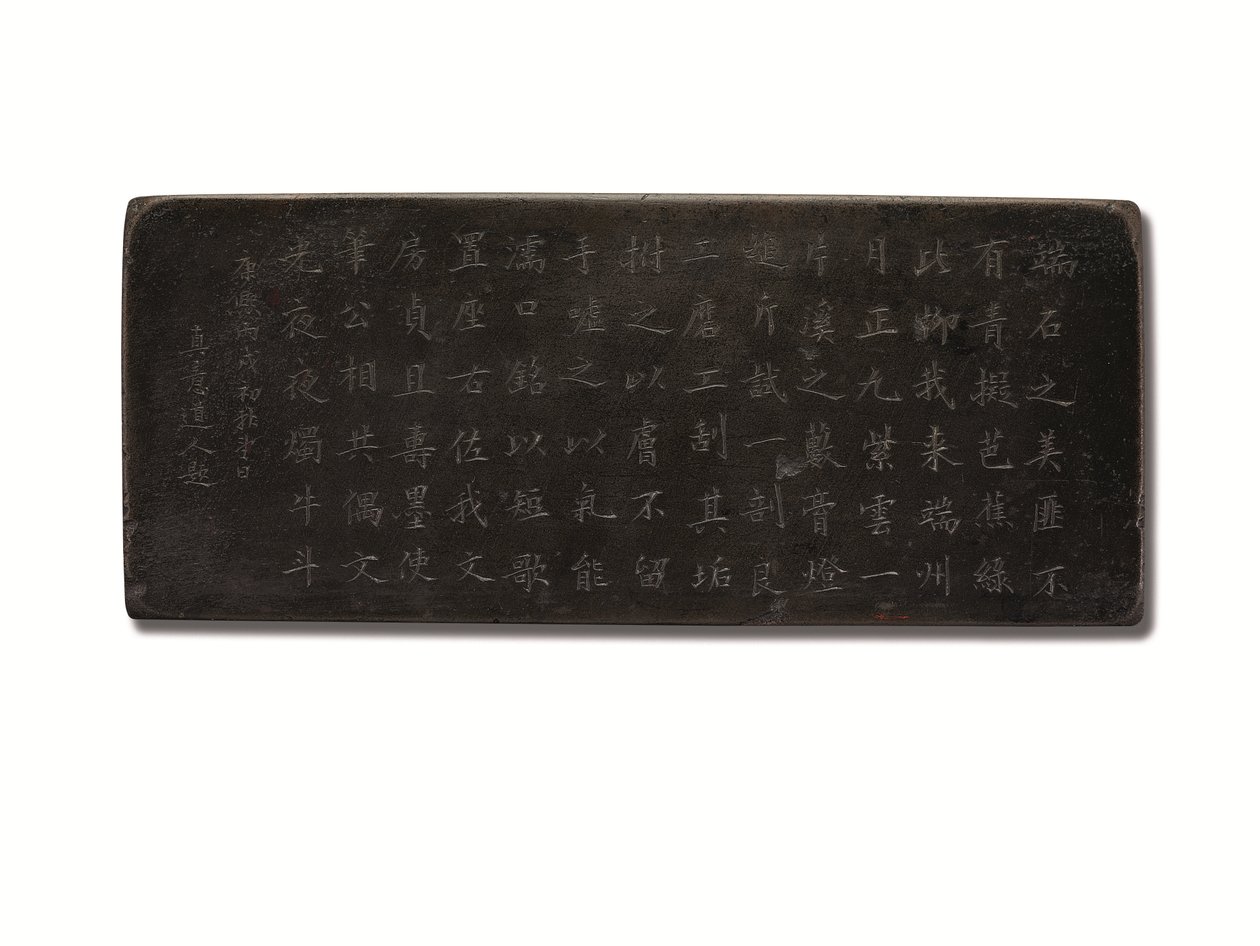 端石之美匪不
有青擬芭蕉綠
此卿我来端州
月正九紫雲一
片溪之藪膏燈
進斤試一剖良
工磨工刮其垢
拊之以膚不留
手噓之以氣能
濡口銘以短歌
置座右佐我文
房貞且壽墨使
筆公相共偶文
光夜夜燭牛斗
康熙丙戌初祚日
真意道人題